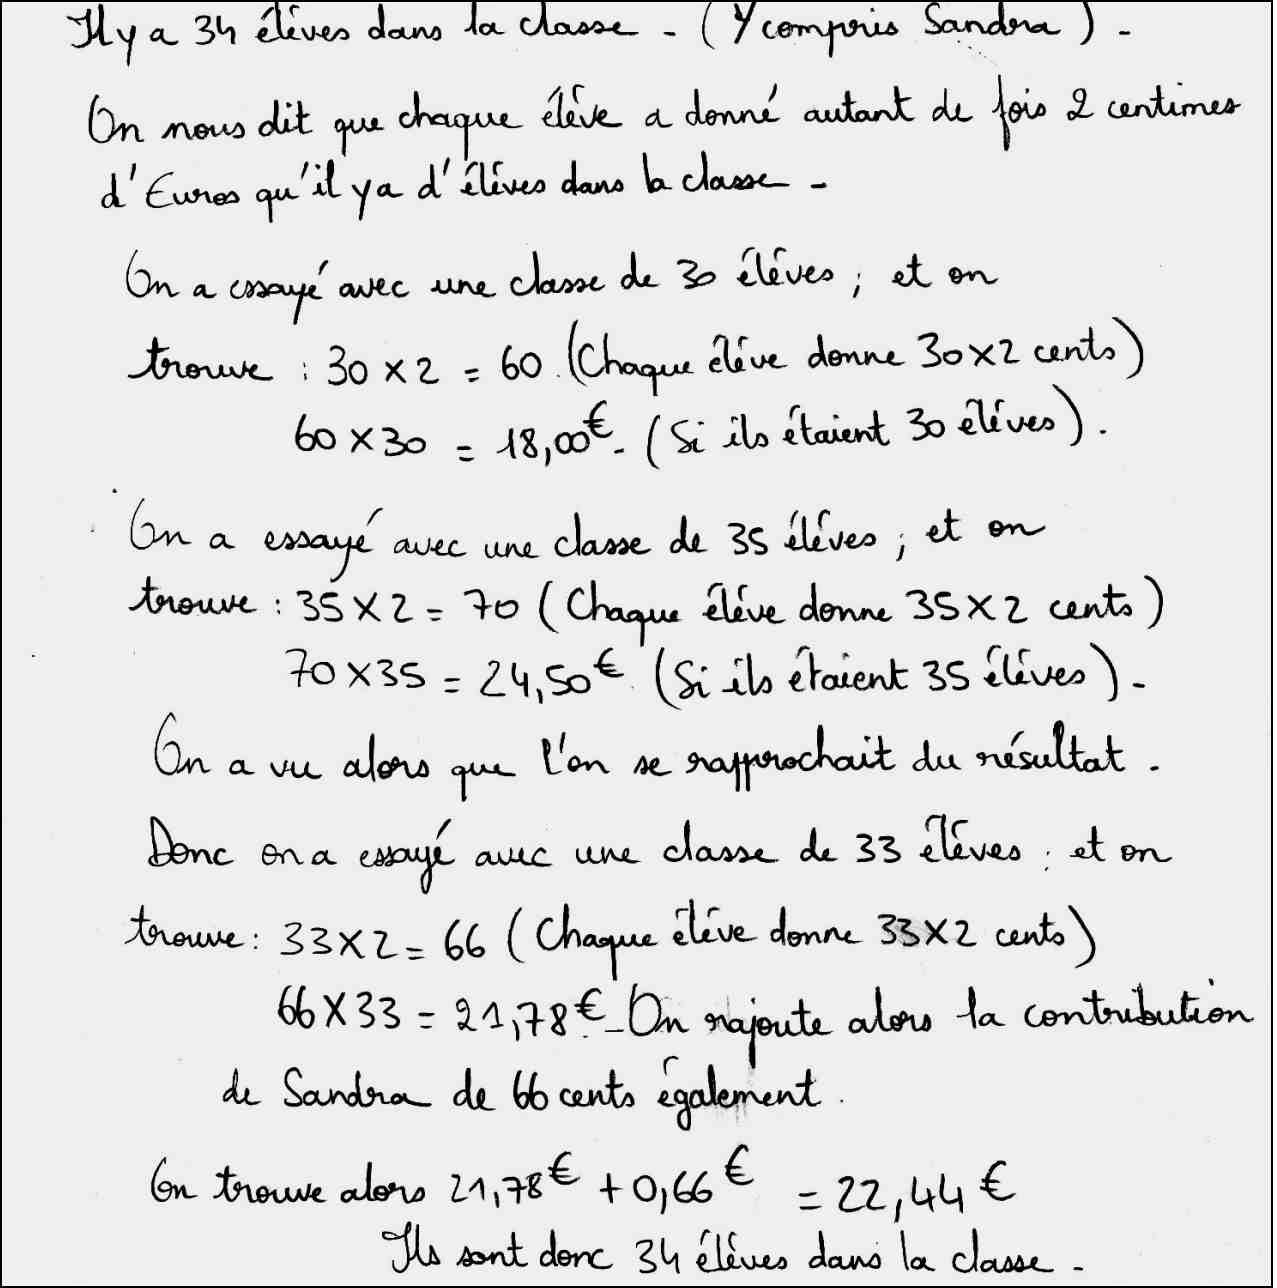 Il y a 34 élèves dans la classe. (Y compris Sandra).
On nous dit que chaque élève a donné autant de fois 2 centimes
d'Euros qu'il y a d'élèves dans la classe.
On a essayé avec une classe de 30 élèves ; et on
trouve : 30 x 2 = 60. (Chaque élève donne 30x2 cents)
60 x 30 = 18,00€. (Si ils étaient 30 élèves).
On a essayé avec une classe de 35 élèves ; et on
trouve : 35 x 2 = 70 (Chaque élève donne 35 x 2 cents)
70 x 35 = 24,50€ (Si ils étaient 35 élèves).
On a vu alors que l'on se rapprochait du résultat.
Donc on a essayé avec une classe de 33 élèves : et on
trouve : 33 x 2 = 66 (Chaque élève donne 33 x 2 cents)
66 x 33 = 21,78€. On rajoute alors la contribution
de Sandra de 66 cents également.
On trouve alors 21,78€ + 0,66€ = 22,44€
Ils sont donc 34 élèves dans la classe.